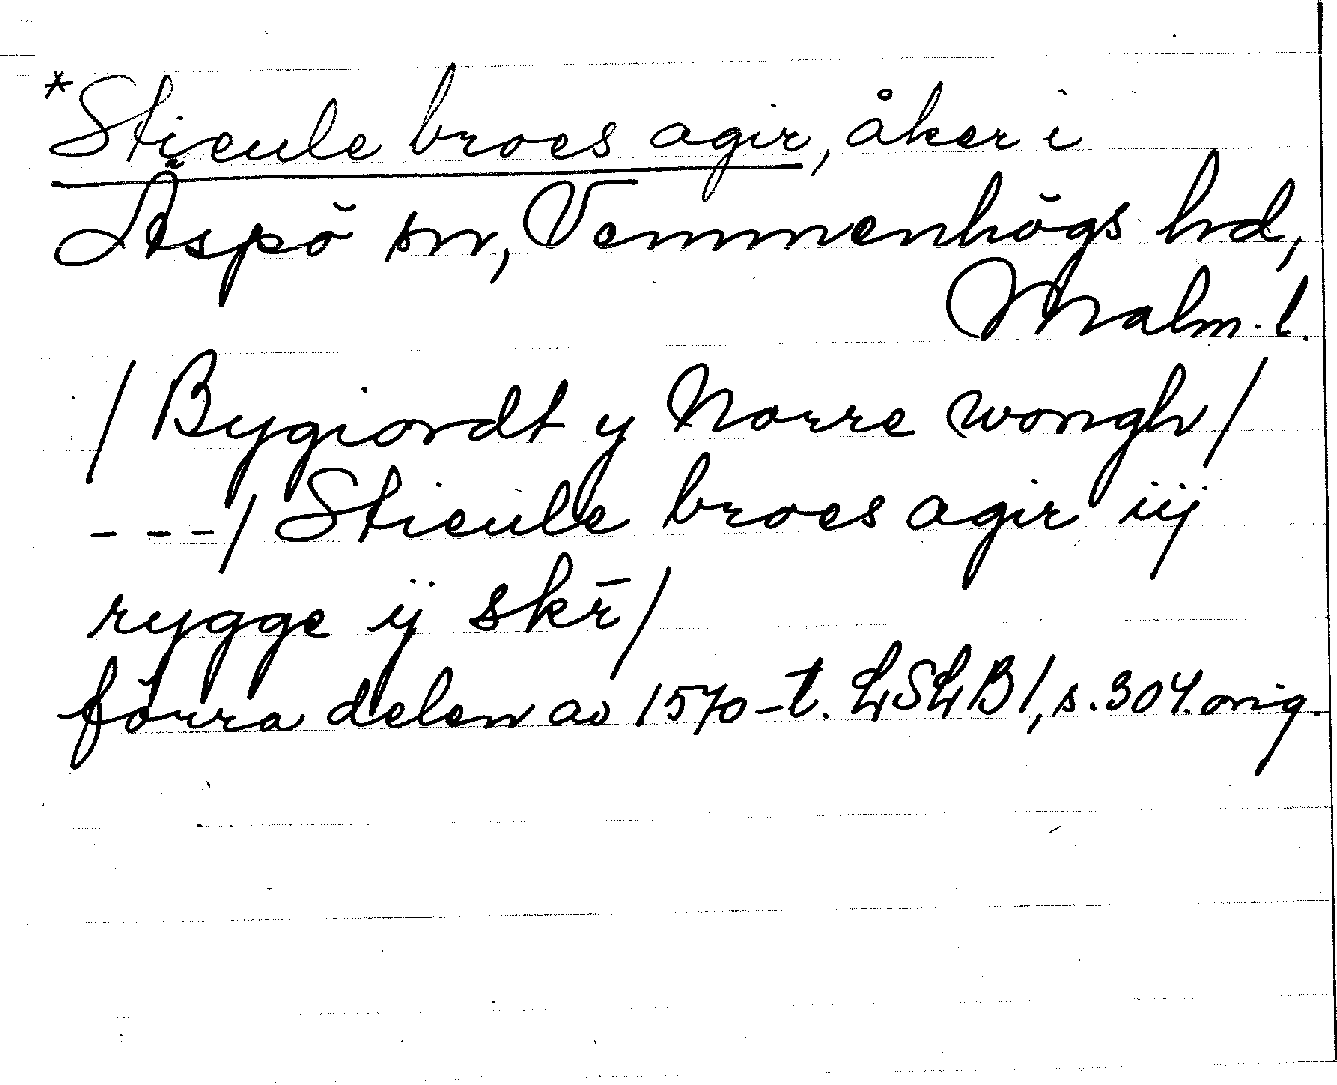 *Sticule broes agir, åker i
Äspö sn, Vemmenhögs hd,
Malm. l.
/ Bygiordt y Norre wongh/
---/ Sticule broes agir iij
rygge ij skr̄/
förra delen av 1570-t. LSLB1, s.304. orig.